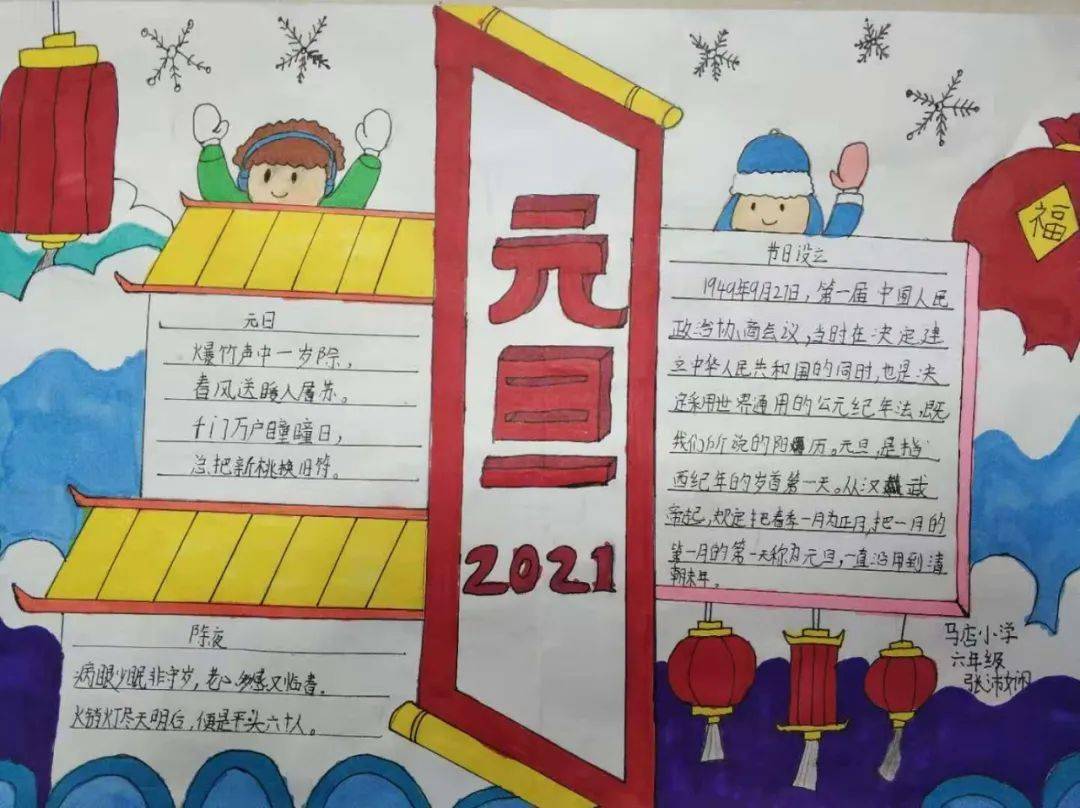 元旦
2021
元日
爆竹声中一岁除，
春风送暖入屠苏。
千门万户瞳瞳日，
总把新桃换旧符。
除夜
病眼少眠非守岁，老心多感又临春。
火销灯尽天明后，便是平头六十人。
节日设立
1949年9月27日，第一届中国人民
政治协商会议，当时在决定建
立中华人民共和国的同时，也是决
定采用世界通用的公元纪年法，既
我们所说的阳历。元旦，是指
西纪年的岁首第一天。从汉武
帝起，规定把春季一月为正月，把一月的
第一月的第一天称为元旦，一直沿用到清
朝末年。
福
马店小学
六年级
张沛